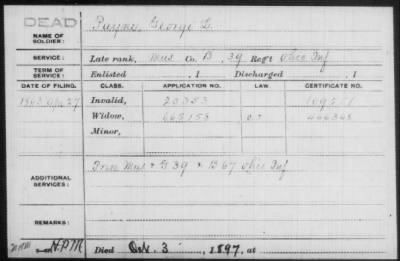 DEAD
NAME OF SOLDIER: George D.
SERVICE: Late rank, Mus Co. B, 39 Reg't Ohio Inf
TERM OF SERVICE: Enlisted , 1 Discharged , 1
DATE OF FILING. CLASS. APPLICATION NO. LAW. CERTIFICATE NO.
1863 27 Invalid, 20353
Widow, 665158
Minor,
ADDITIONAL SERVICES: Prin Mus + G 39 + B 67 Ohio Inf
REMARKS:
Died Oct. 3 , 1897, at